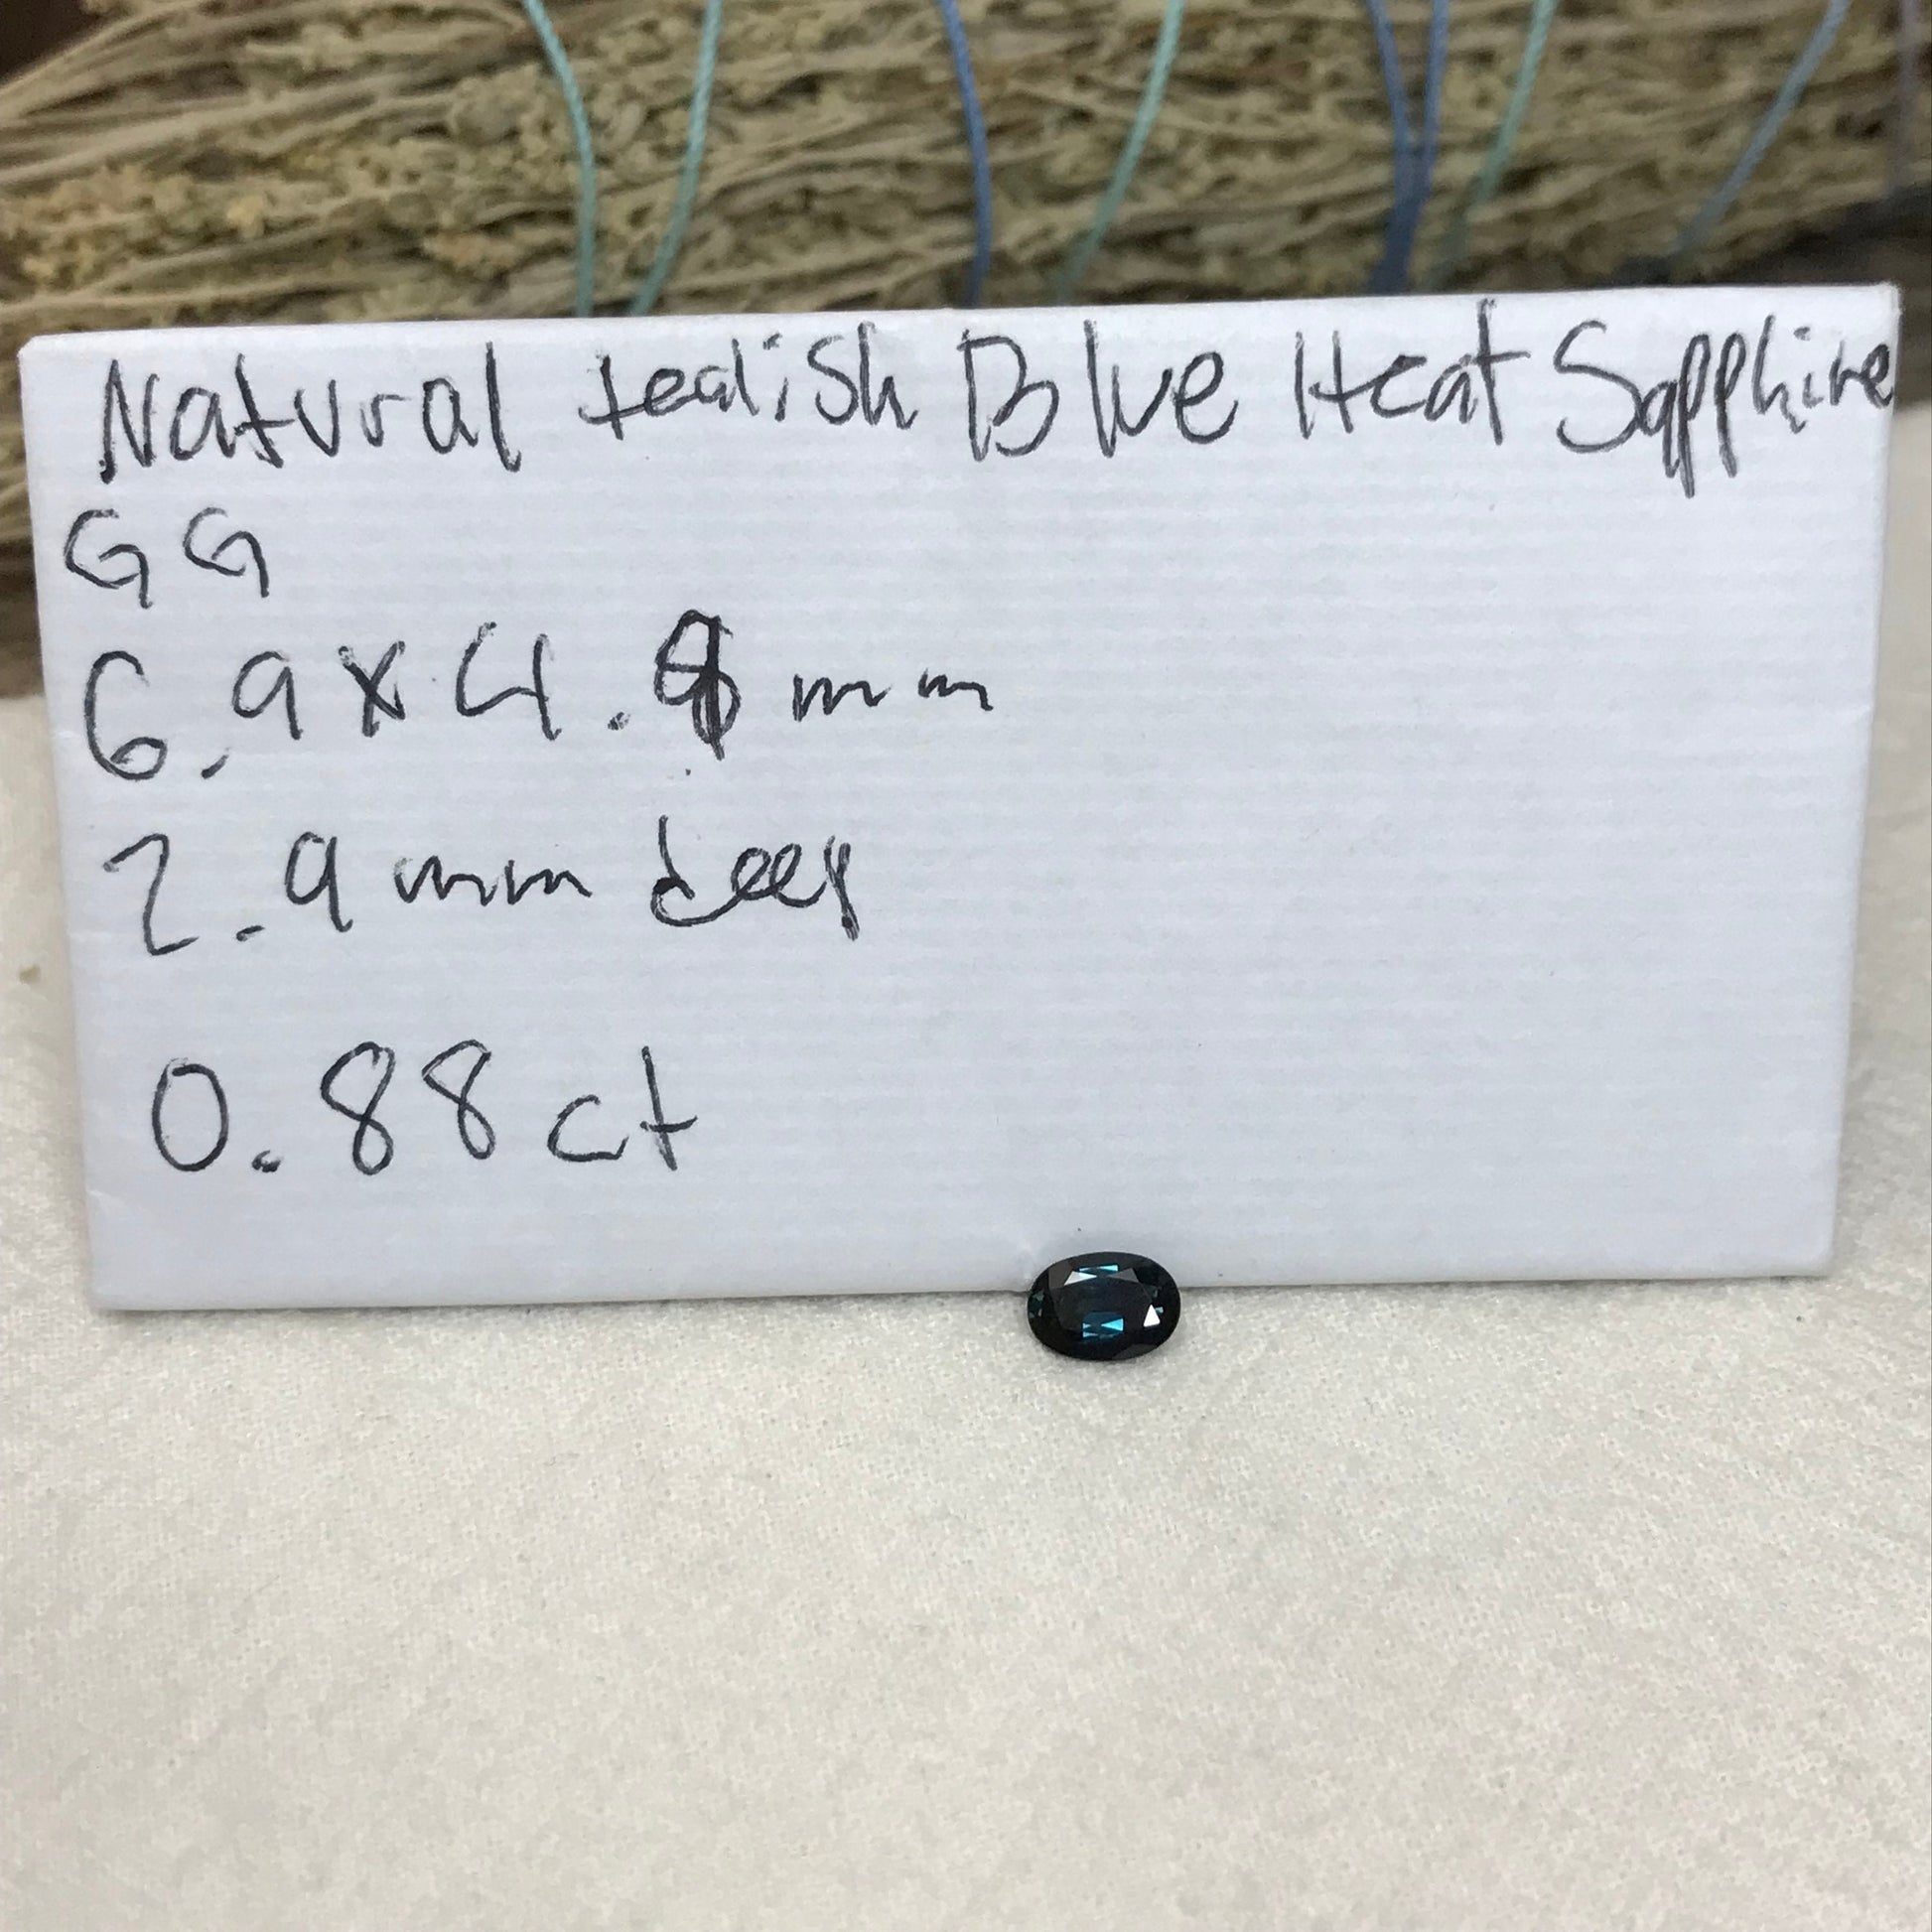 Natural tealish Blue Heat Sapphire
GG
6.9 x 4.9 mm
2.9 mm deep
0.88 ct